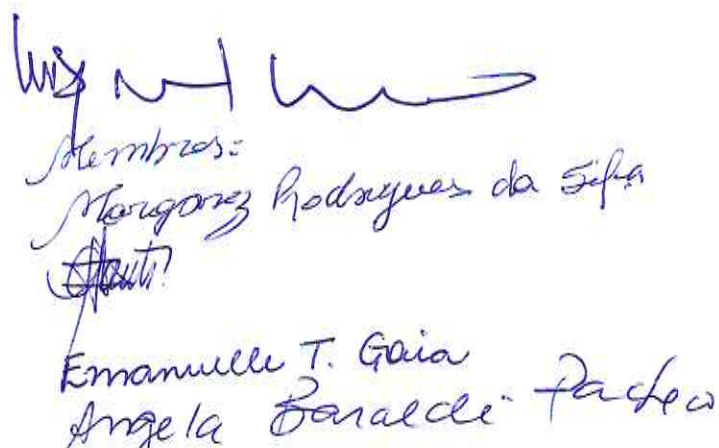 Luiz
Membros:
Margarez Rodrigues da Silva
Emanuelle T. Gaia
Angela Baraldi Pacheco